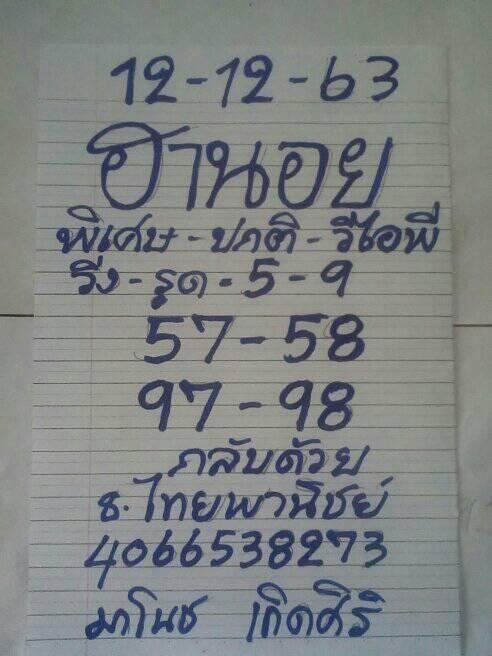 12-12-63
ฮานอย
พิเศษ-ปกติ-วีไอพี
วิ่ง-รูด-5-9
57-58
97-98
กลับด้วย
ธ.ไทยพานิชย์
4066538273
มาโนช เกิดศิริ